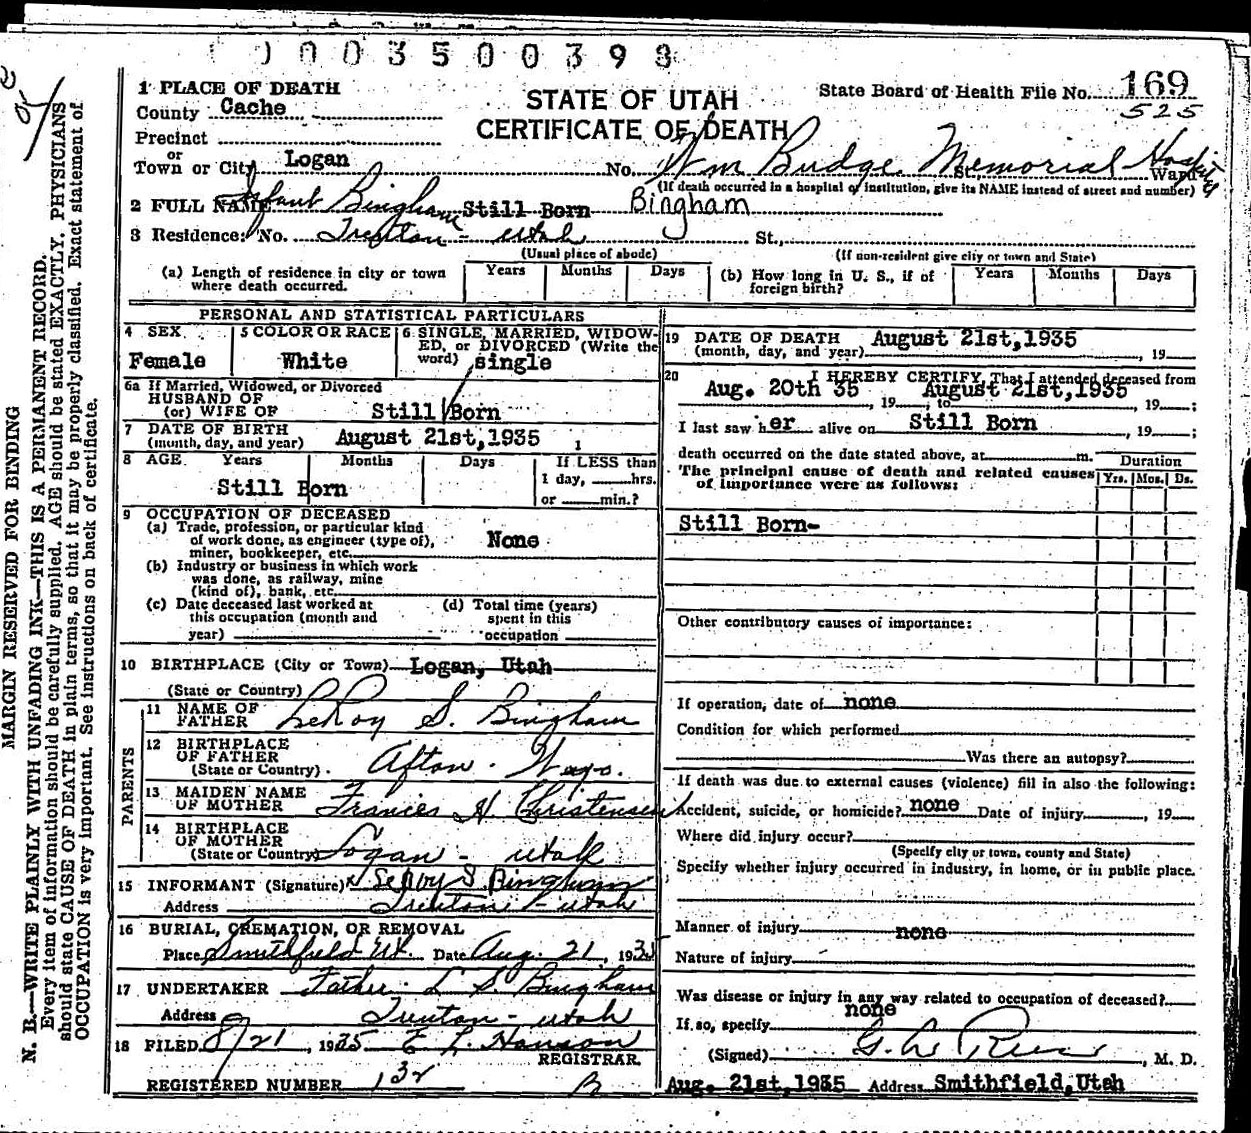 0003500398
1 PLACE OF DEATH
County Cache
Precinct
or
Town or City Logan
STATE OF UTAH
CERTIFICATE OF DEATH
State Board of Health File No. 169
525
No. Wm Budge Memorial Hospital St. Ward
(If death occurred in a hospital or institution, give its NAME instead of street and number)
2 FULL NAME Infant Bingham Still Born Bingham
3 Residence: No. Trenton - Utah St.,
(Usual place of abode) (If non-resident give city or town and State)
(a) Length of residence in city or town where death occurred. Years Months Days
(b) How long in U. S., if of foreign birth? Years Months Days
PERSONAL AND STATISTICAL PARTICULARS
4 SEX Female
5 COLOR OR RACE White
6 SINGLE, MARRIED, WIDOW-
ED, or DIVORCED (Write the
word) single
6a If Married, Widowed, or Divorced
HUSBAND OF
(or) WIFE OF Still Born
7 DATE OF BIRTH
(month, day, and year) August 21st,1935 1
8 AGE Years Months Days If LESS than
1 day, hrs.
or min.?
Still Born
9 OCCUPATION OF DECEASED
(a) Trade, profession, or particular kind
of work done, as engineer (type of),
miner, bookkeeper, etc. None
(b) Industry or business in which work
was done, as railway, mine
(kind of), bank, etc.
(c) Date deceased last worked at
this occupation (month and
year)
(d) Total time (years)
spent in this
occupation
10 BIRTHPLACE (City or Town) Logan, Utah
(State or Country)
PARENTS
11 NAME OF
FATHER LeRoy S. Bingham
12 BIRTHPLACE
OF FATHER
(State or Country). Afton - Wyo.
13 MAIDEN NAME
OF MOTHER Frances H. Christensen
14 BIRTHPLACE
OF MOTHER
(State or Country) Logan - Utah
15 INFORMANT (Signature) x LeRoy S. Bingham
Address Trenton - Utah
16 BURIAL, CREMATION, OR REMOVAL
Place Smithfield Ut. Date Aug. 21, 1935
17 UNDERTAKER Father - L S. Bingham
Address Trenton - Utah
18 FILED 8/21, 1935 E L. Hanson
REGISTRAR.
REGISTERED NUMBER 132
19 DATE OF DEATH August 21st,1935
(month, day, and year) , 19
20 I HEREBY CERTIFY, That I attended deceased from
Aug. 20th 35 , 19 ; to August 21st,1935 , 19 ;
I last saw her alive on Still Born , 19 ;
death occurred on the date stated above, at m.
The principal cause of death and related causes
of importance were as follows:
Duration
Yrs. Mos. Ds.
Still Born-
Other contributory causes of importance:
If operation, date of none
Condition for which performed
Was there an autopsy?
If death was due to external causes (violence) fill in also the following:
Accident, suicide, or homicide? none Date of injury , 19
Where did injury occur?
(Specify city or town, county and State)
Specify whether injury occurred in industry, in home, or in public place.
Manner of injury none
Nature of injury
Was disease or injury in any way related to occupation of deceased?
none
If so, specify
(Signed) , M. D.
Aug. 21st,1935 Address Smithfield,Utah
MARGIN RESERVED FOR BINDING
N. B.—WRITE PLAINLY WITH UNFADING INK—THIS IS A PERMANENT RECORD.
Every item of information should be carefully supplied. AGE should be stated EXACTLY. PHYSICIANS
should state CAUSE OF DEATH in plain terms, so that it may be properly classified. Exact statement of
OCCUPATION is very important. See instructions on back of certificate.